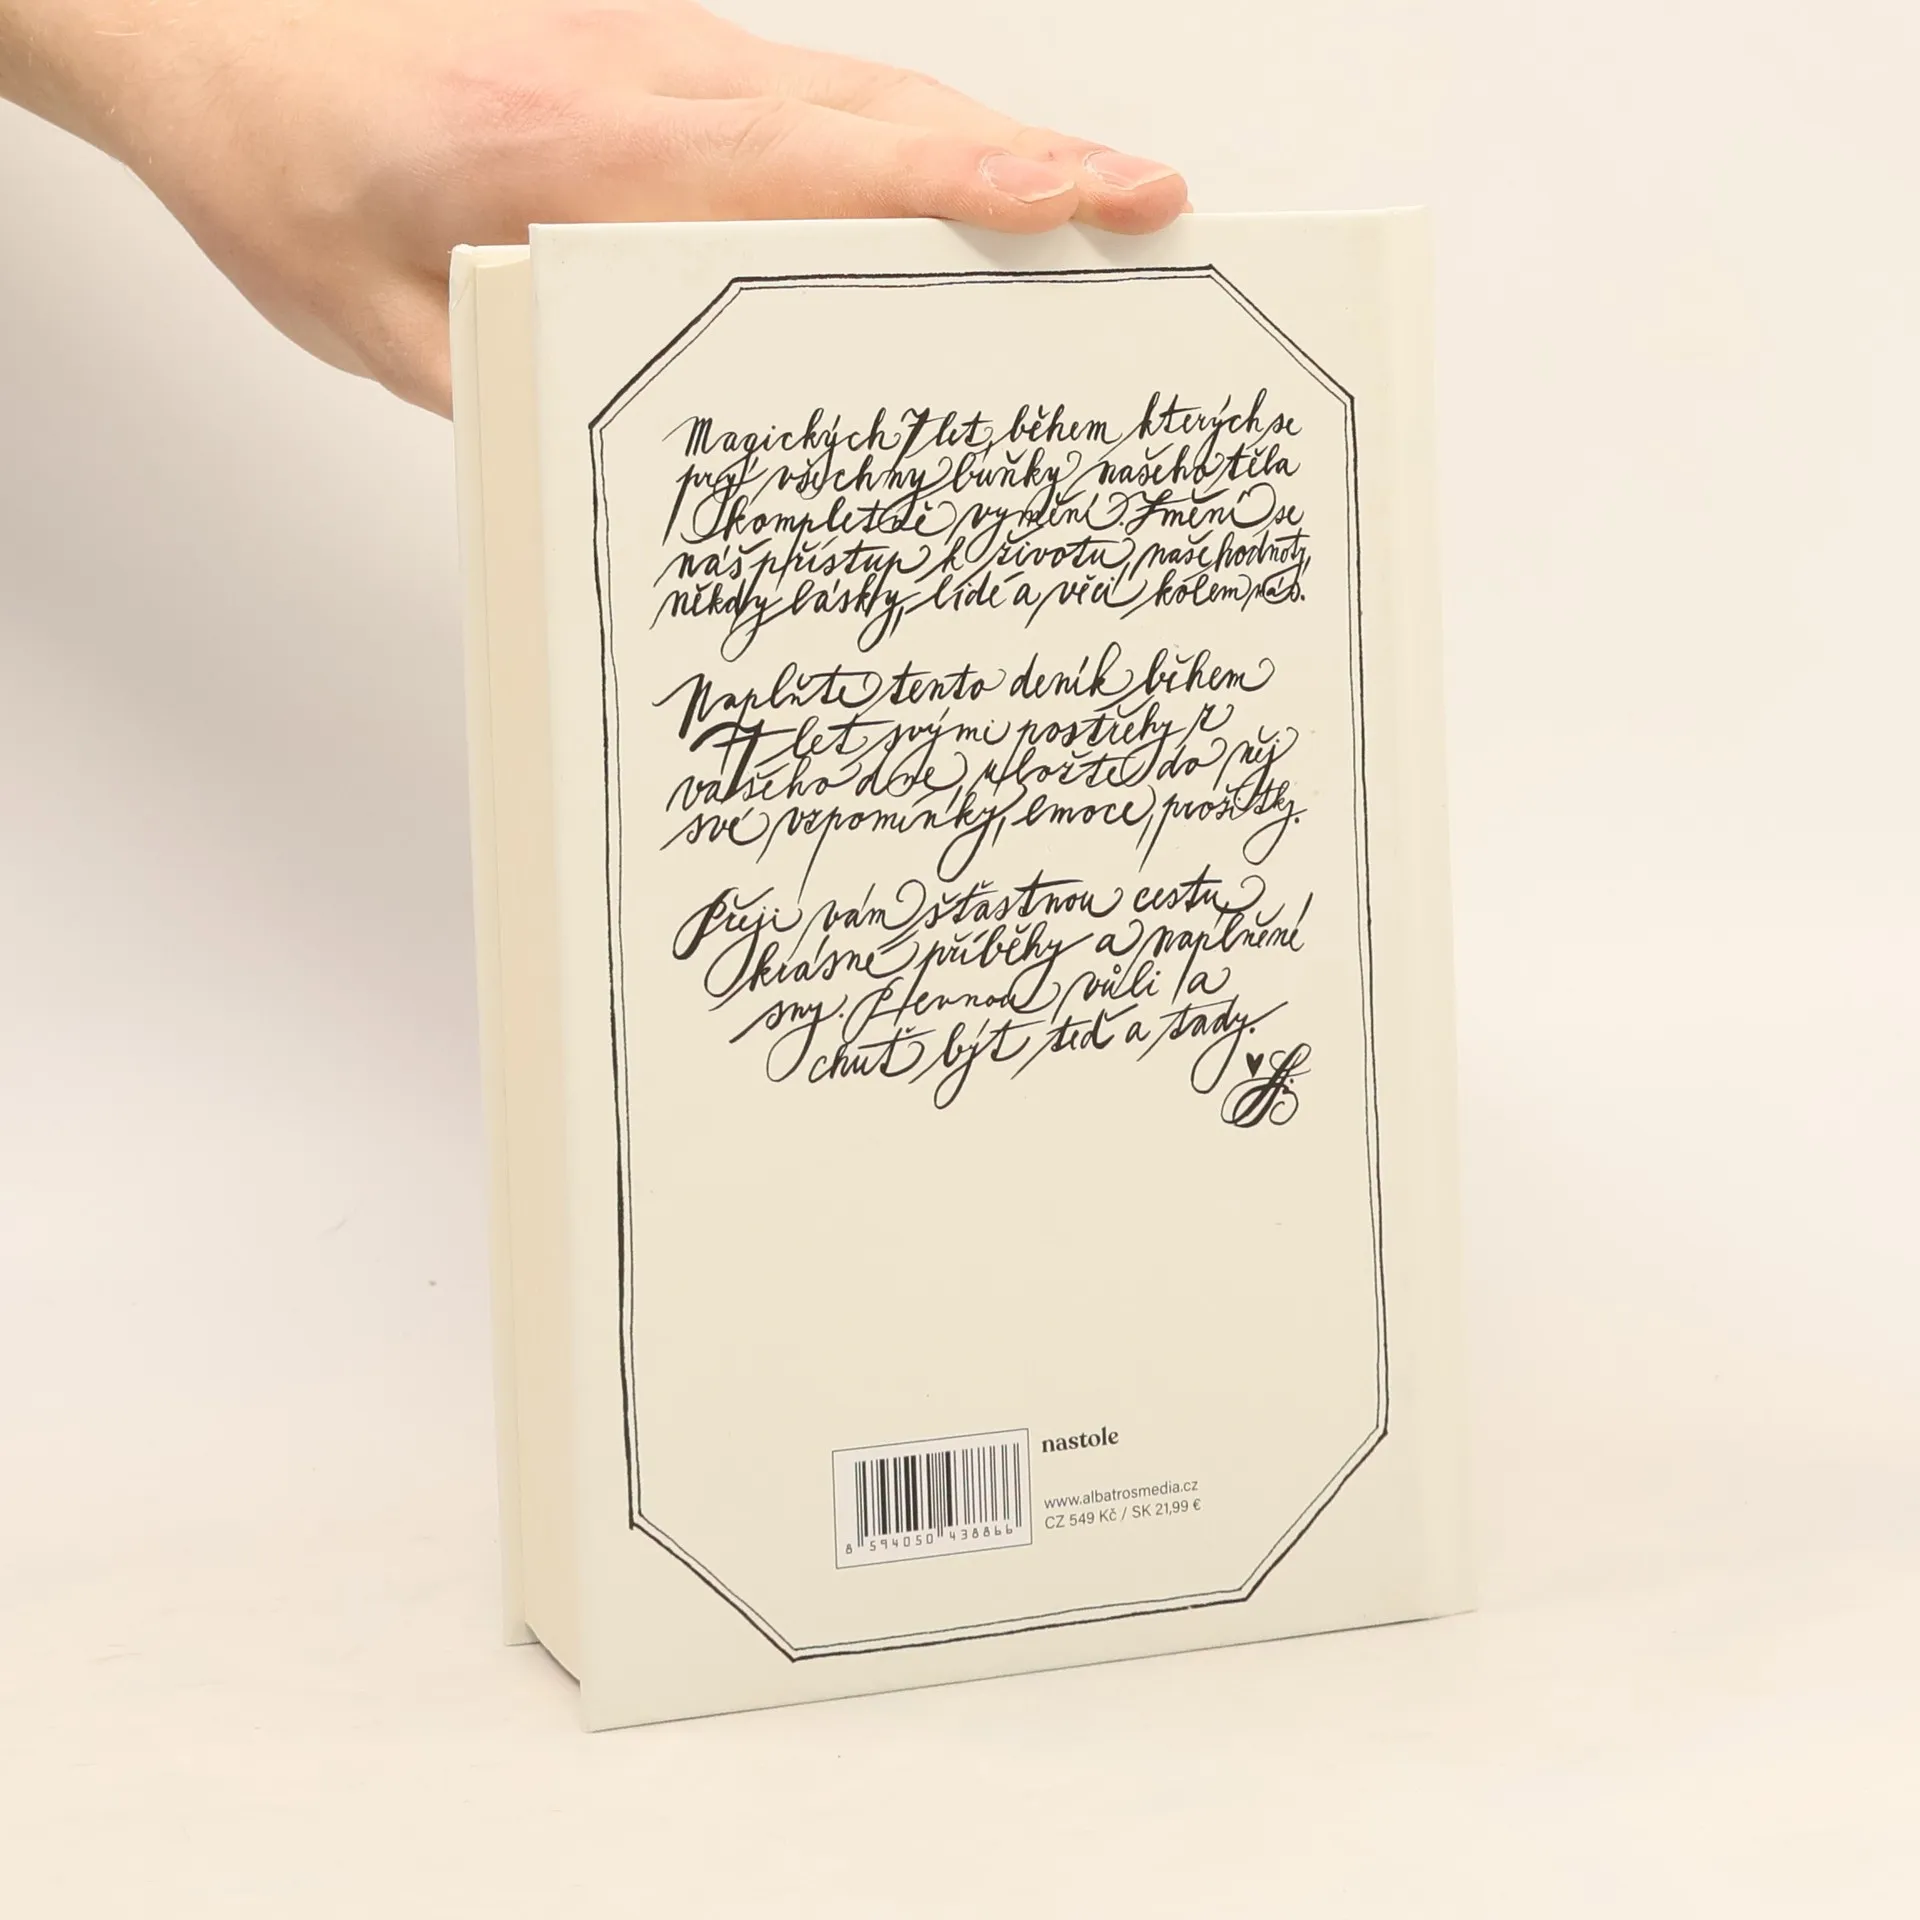 Magických 7 let, během kterých se
prý všechny buňky našeho těla
kompletně vymění. Změní se
náš přístup k životu, naše hodnoty,
někdy lásky, lidé a věci kolem nás.
Naplňte tento deník během
7 let svými postřehy z
vašeho dne, uložte do něj
své vzpomínky, emoce, prožitky.
Přeji vám šťastnou cestu,
krásné příběhy a naplněné
sny. Pevnou vůli a
chuť být teď a tady.
nastole
www.albatrosmedia.cz
CZ 549 Kč / SK 21,99 €
8 594050 438866